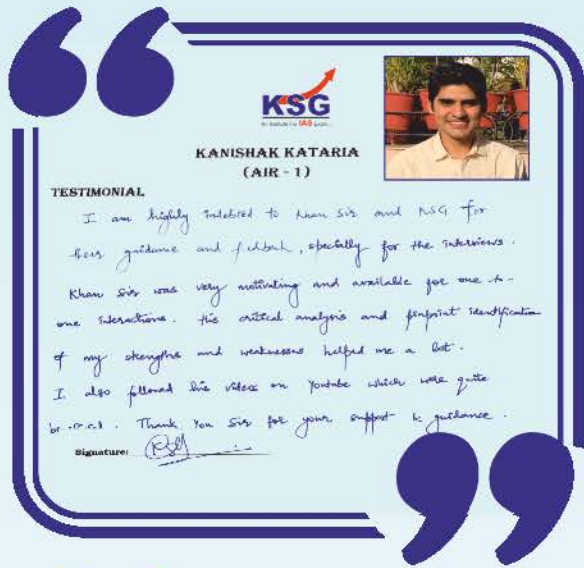 KSG
KANISHAK KATARIA
(AIR - 1)
TESTIMONIAL
I am highly indebted to Khan Sir and KSG for
their guidance and feedback, specially for the interviews.
Khan Sir was very motivating and available for one-to-
one interactions. His critical analysis and pinpoint identification
of my strengths and weaknesses helped me a lot.
I also followed live videos on Youtube which were quite
Thank You Sir for your support & guidance.
Signature: